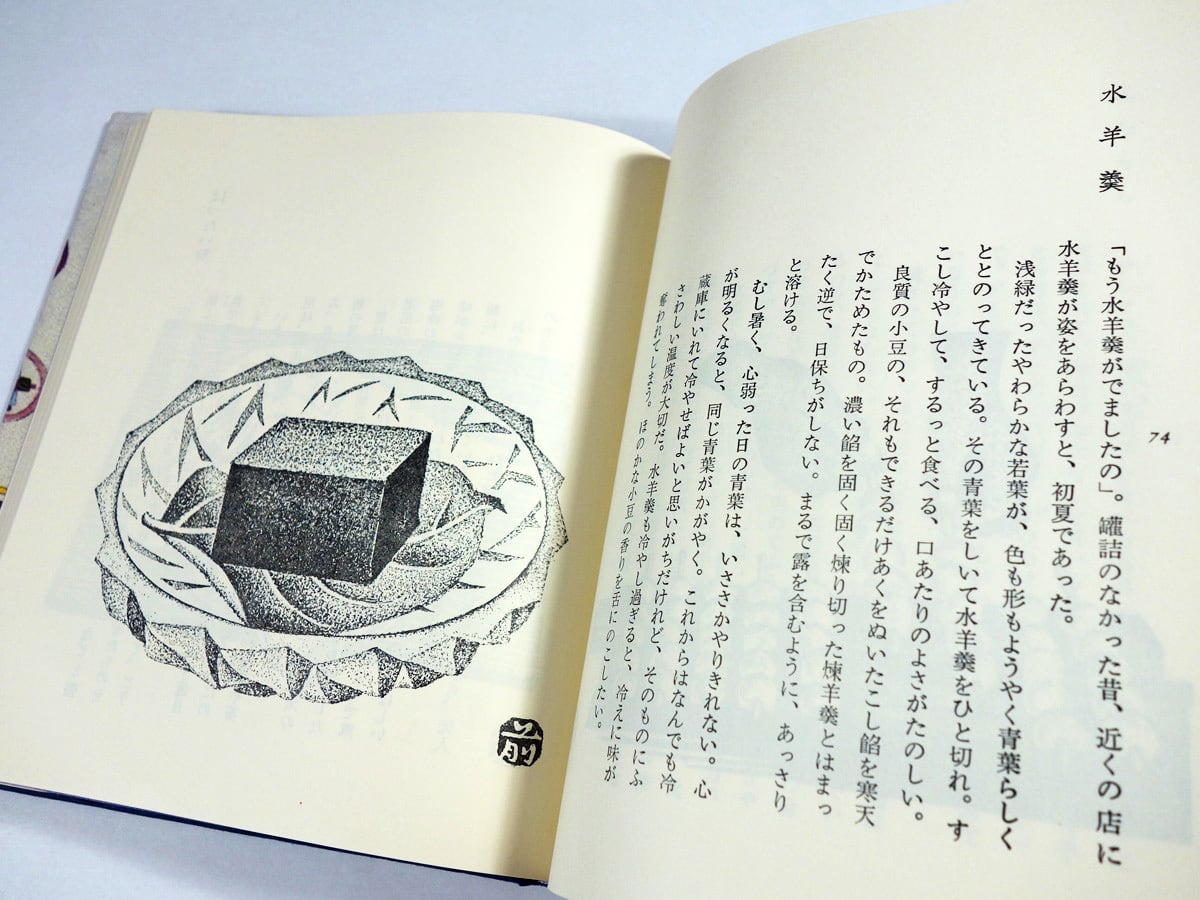 水羊羹
「もう水羊羹がでましたの」。罐詰のなかった昔、近くの店に
水羊羹が姿をあらわすと、初夏であった。
浅緑だったやわらかな若葉が、色も形もようやく青葉らしく
ととのってきている。その青葉をしいて水羊羹をひと切れ。す
こし冷やして、するっと食べる、口あたりのよさがたのしい。
良質の小豆の、それもできるだけあくをぬいたこし餡を寒天
でかためたもの。濃い餡を固く固く煉り切った煉羊羹とはまっ
たく逆で、日保ちがしない。まるで露を含むように、あっさり
と溶ける。
むし暑く、心弱った日の青葉は、いささかやりきれない。心
が明るくなると、同じ青葉がかがやく。これからはなんでも冷
蔵庫にいれて冷やせばよいと思いがちだけれど、そのものにふ
さわしい温度が大切だ。水羊羹も冷やし過ぎると、冷えに味が
奪われてしまう。ほのかな小豆の香りを舌にのこしたい。
74
前